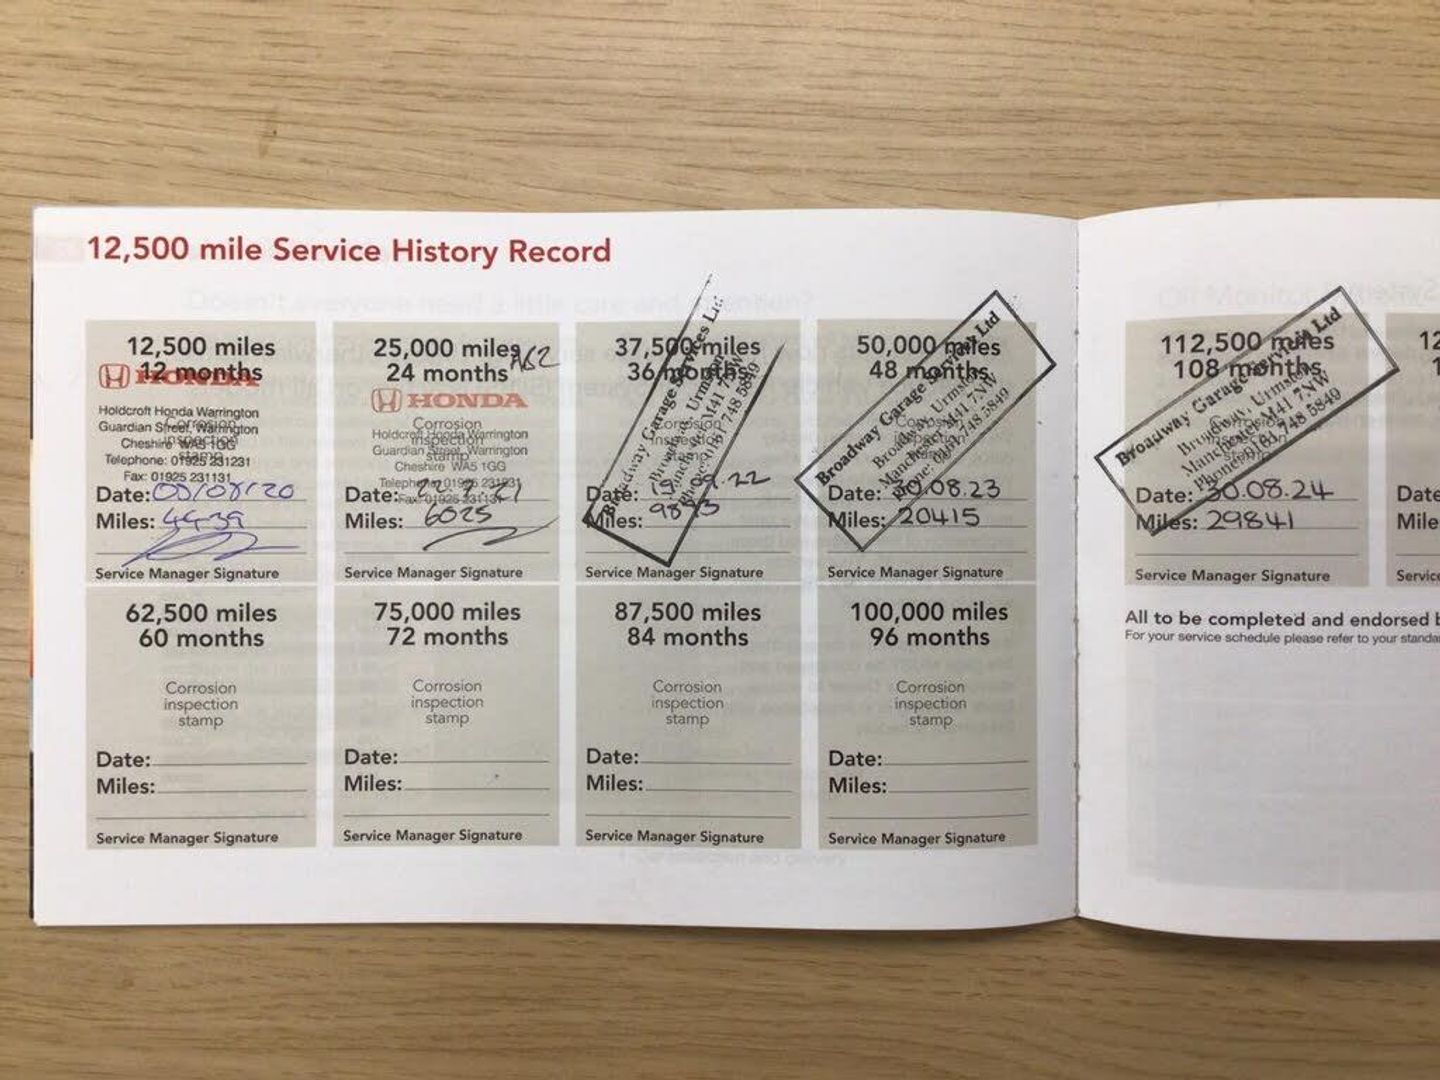 12,500 mile Service History Record
12,500 miles
12 months
HONDA
Holdcroft Honda Warrington
Guardian Street, Warrington
Cheshire WA5 1GG
Corrosion
inspection
stamp
Telephone: 01925 231231
Fax: 01925 231131
Date: /20
Miles: 4439
Service Manager Signature
25,000 miles
24 months
HONDA
Corrosion
inspection
stamp
Holdcroft Honda Warrington
Guardian Street, Warrington
Cheshire WA5 1GG
Telephone: 01925 231231
Fax: 01925 231131
Date:
Miles: 6025
Service Manager Signature
37,500 miles
36 months
Broadway Garage Services
Broadway, Urmston
Manchester M41 7NW
Phone: 0161 748 5849
Corrosion
inspection
stamp
Date: .09.22
Miles:
Service Manager Signature
50,000 miles
48 months
Broadway Garage Services Ltd
Broadway, Urmston
Manchester M41 7NW
Phone: 0161 748 5849
Corrosion
inspection
stamp
Date: 30.08.23
Miles: 20415
Service Manager Signature
62,500 miles
60 months
Corrosion
inspection
stamp
Date:
Miles:
Service Manager Signature
75,000 miles
72 months
Corrosion
inspection
stamp
Date:
Miles:
Service Manager Signature
87,500 miles
84 months
Corrosion
inspection
stamp
Date:
Miles:
Service Manager Signature
100,000 miles
96 months
Corrosion
inspection
stamp
Date:
Miles:
Service Manager Signature
112,500 miles
108 months
Broadway Garage Services Ltd
Broadway, Urmston
Manchester M41 7NW
Phone: 0161 748 5849
Date: 30.08.24
Miles: 29841
Service Manager Signature
All to be completed and endorsed
For your service schedule please refer to your
Date
Mile
Service